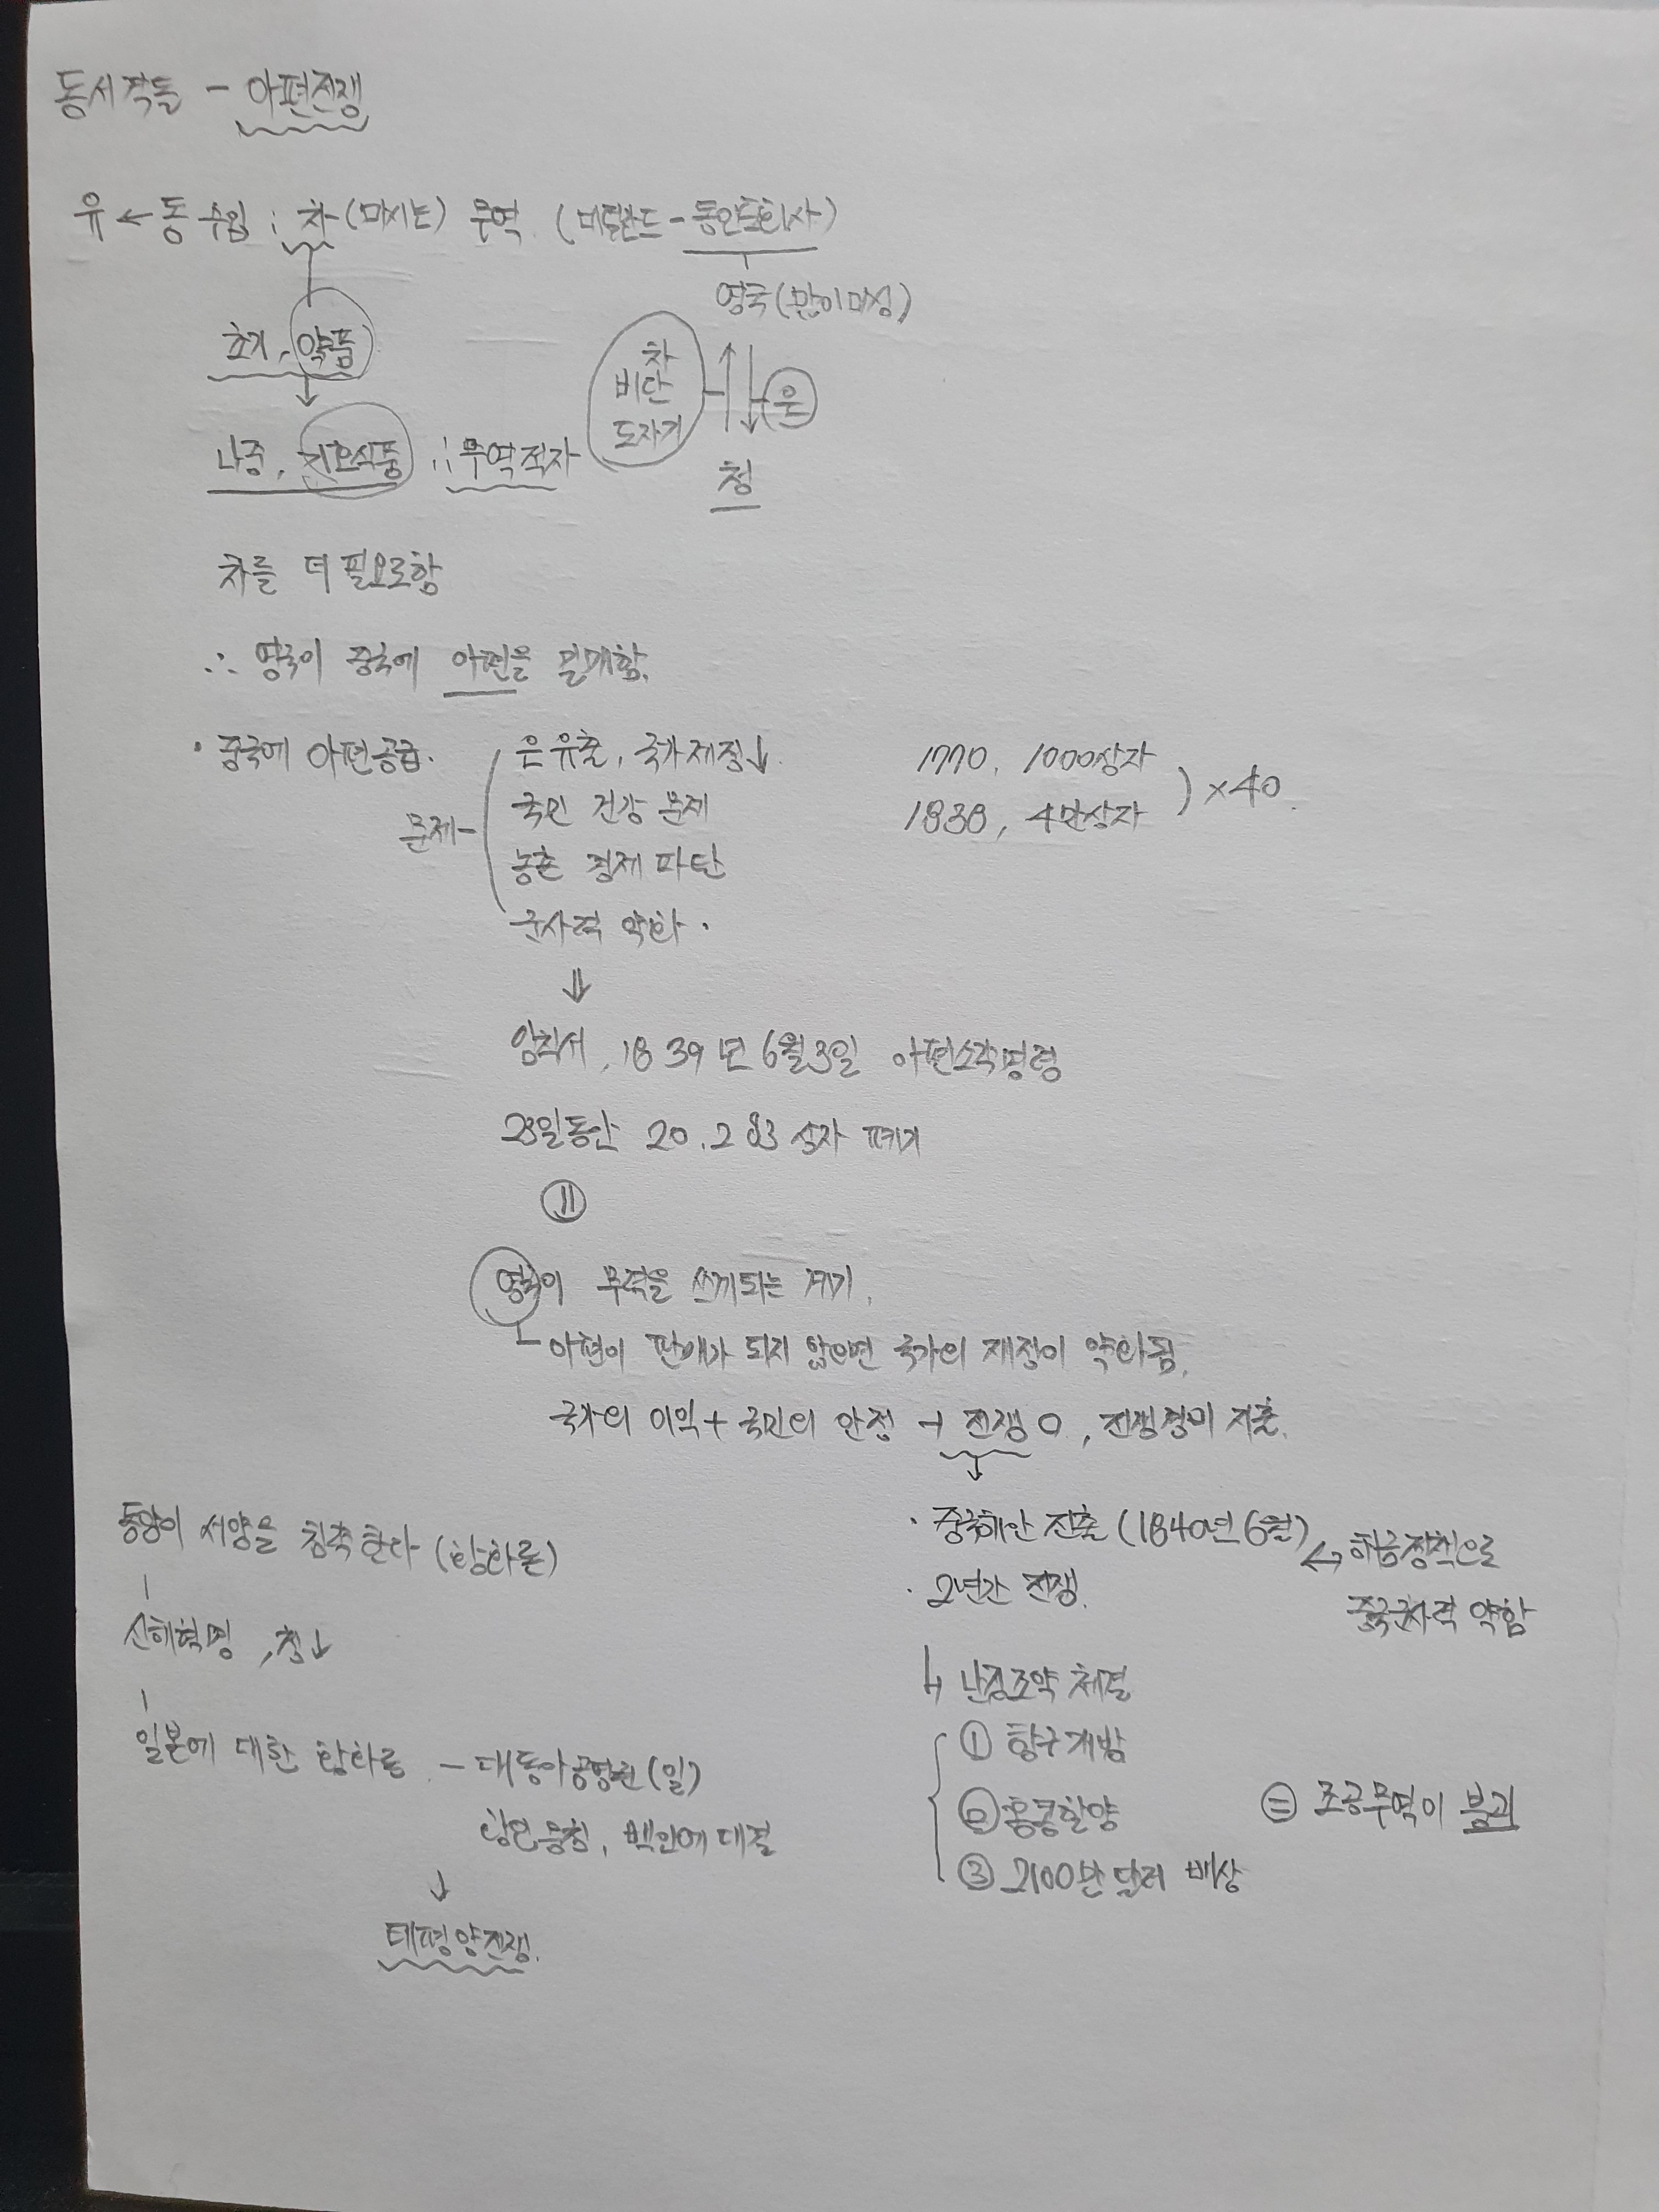 동서격돌 - 아편전쟁
유 ← 동 수입 : 차 (마시는) 무역. (네덜란드 - 동인도회사)
영국 (많이마심)
초기, 약품
차
비단
도자기
은
↓
나중, 기호식품 ∴ 무역적자
청
차를 더 필요로함
∴ 영국이 중국에 아편을 판매함.
· 중국에 아편공급.
문제 -
은 유출, 국가재정↓
국민 건강 문제
농촌 경제 파탄
군사력 약화.
1770, 1000상자
1838, 4만상자 ) ×40.
⇓
임칙서, 1839년 6월3일 아편소각명령
23일동안 20.283 상자 폐기
⇓
영국이 무력을 쓰게되는 계기.
ㄴ 아편이 판매가 되지 않으면 국가의 재정이 약화됨.
국가의 이익 + 국민의 안정 → 전쟁 O, 전쟁경비 지출.
· 중국해안 진출 (1840년 6월) ↔ 해금정책으로
중국군사력 약함
· 2년간 전쟁.
↳ 난징조약 체결
① 항구개방
② 홍콩할양
③ 2100만 달러 배상
= 조공무역이 붕괴
동양이 서양을 침략한다 (황화론)
신해혁명, 청↓
일본에 대한 황화론 - 대동아공영권(일)
황인종, 백인에 대결
↓
태평양전쟁.